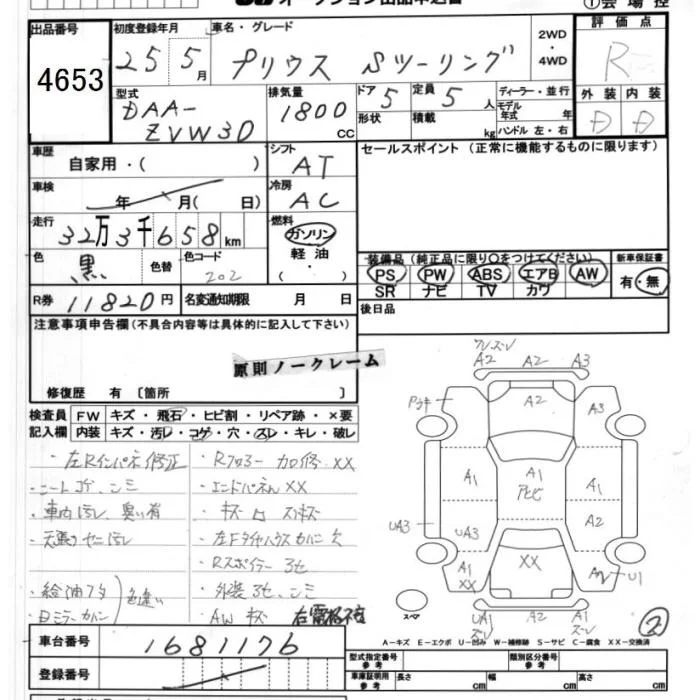 オークション出品申込書
①会場控
出品番号 初度登録年月 車名・グレード 2WD ・ 4WD 評価点
4653
25 5月 プリウス Sツーリング R
型式 排気量 ドア 定員 ディーラー・並行 外装 内装
DAA- ZVW30 1800 cc 5 5 人 モデル年式 年 D D
形状 積載 kg ハンドル 左・右
車歴 シフト セールスポイント (正常に機能するものに限ります)
自家用・( ) AT
車検 冷房
年 月( 日) AC
走行 燃料
32万3千658km ガソリン
色 色替 色コード 軽油 装備品 (純正品に限り○をつけてください) 新車保証書
黒 202 ・ PS PW ABS エアB AW 有・無
SR ナビ TV カワ
R券 11820円 名変通知期限 月 日 後日品
注意事項申告欄(不具合内容等は具体的に記入して下さい)
原則ノークレーム
修復歴 有 〔箇所 〕
検査員 FW キズ・飛石・ヒビ割・リペア跡・×要
記入欄 内装 キズ・汚レ・コゲ・穴・スレ・キレ・破レ
・左Rインパネ修正 ・Rフロアー加修 XX
・シートコゲ、シミ ・エンドパネル XX
・車内汚レ、臭い有 ・キズ
・天張ヤニ汚レ ・左Fライトハウスカバー欠
・Rスポイラー
・給油フタ 色違い ・外装
・ミラーカバー ・AW キズ 右電格不良
A2 A2 A3
A2 A3
A1 A1 A1
UA3 UA3 A2
XX
A1 XX U1
UA1 A2 A1
スペア
②
A-キズ E-エクボ U-凹み W-補修跡 S-サビ C-腐食 XX-交換済
車台番号 1681176
型式指定番号 参考 類別区分番号 参考
登録番号 車庫証明用 参考 長さ cm 幅 cm 高さ cm